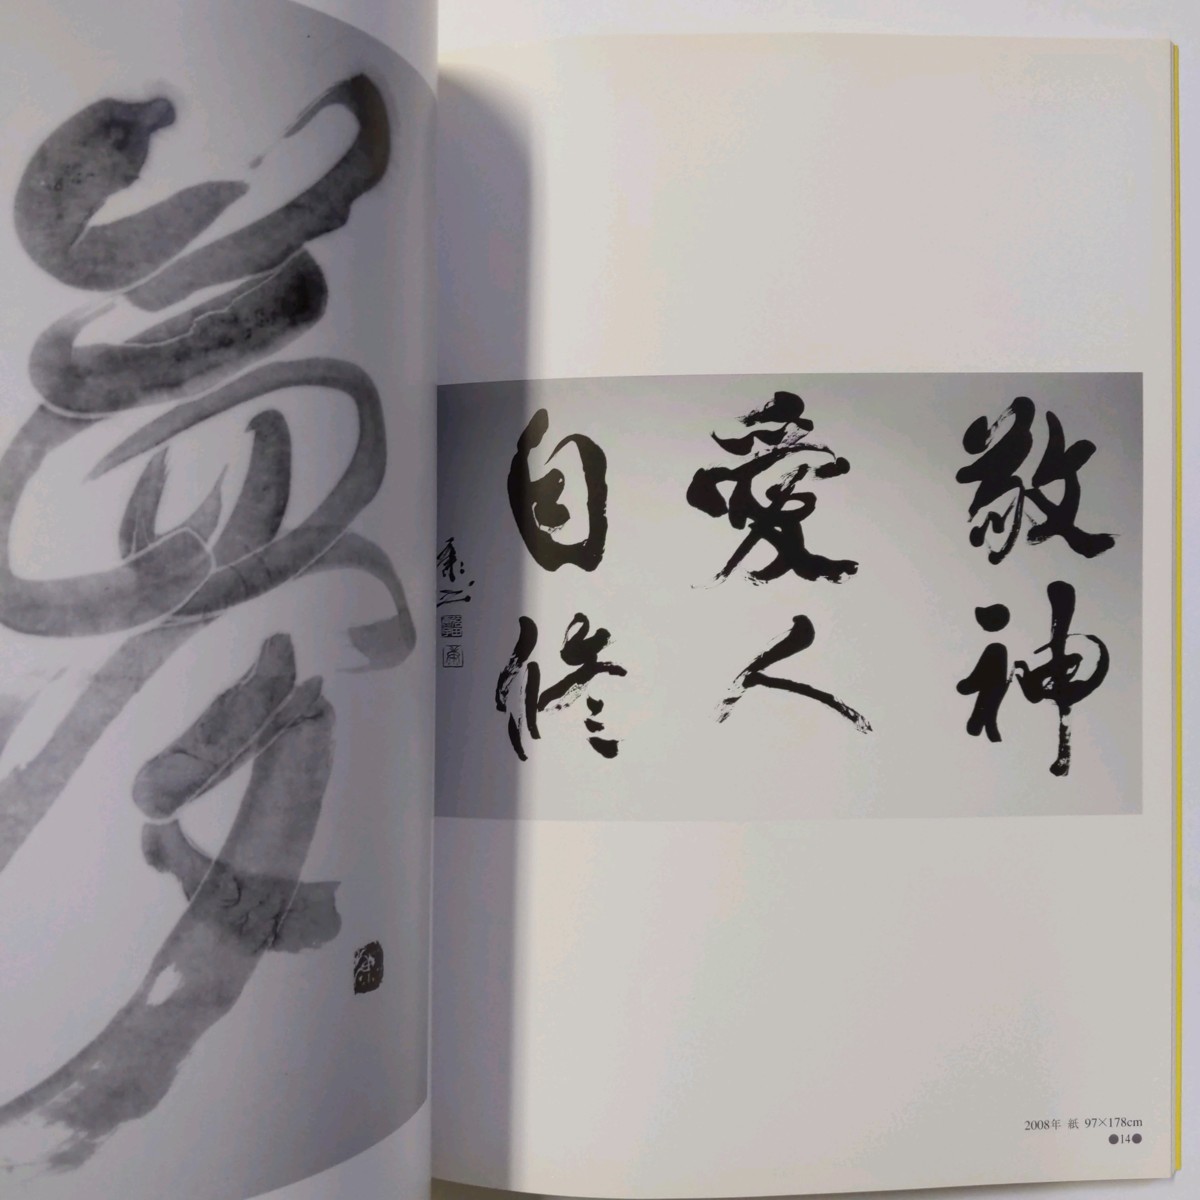 夢
敬神
愛人
自修
2008年 紙 97×178cm
●14●